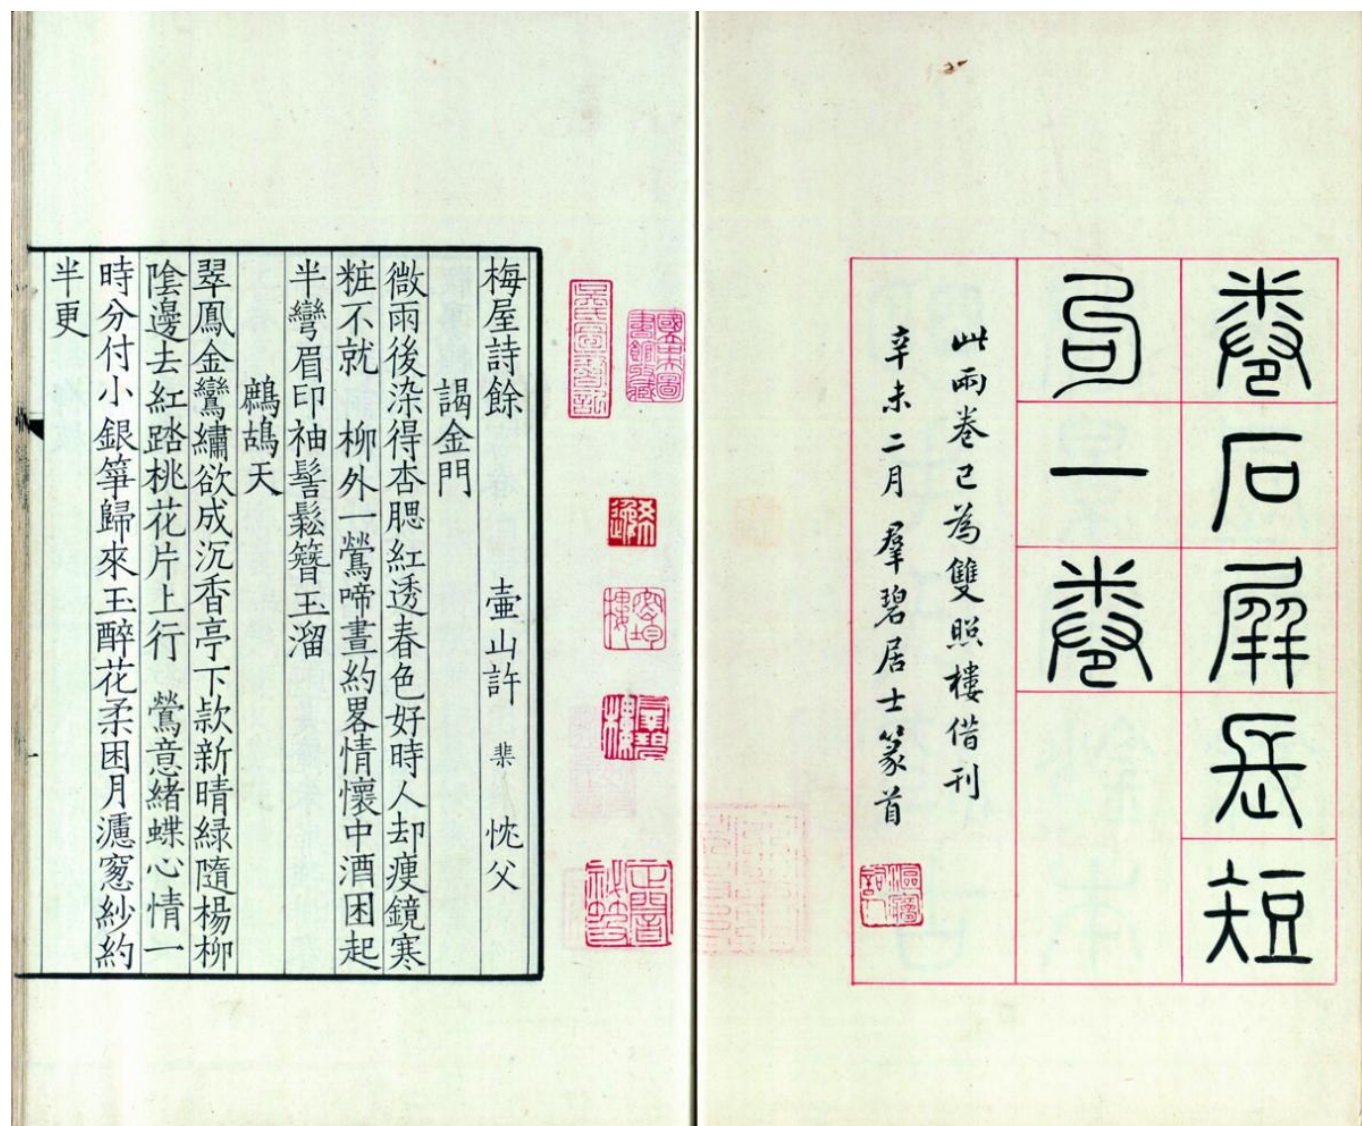 卷石屏長短
句一卷
此兩卷已為雙照樓借刊
辛未二月羣碧居士篆首
國立中央圖
書館收藏
羣碧
樓
正闇
祕笈
梅屋詩餘 壷山許 棐 忱父
謁金門
微雨後染得杏腮紅透春色好時人却瘦鏡寒
粧不就 柳外一鶯啼晝約畧情懷中酒困起
半彎眉印袖髻鬆簪玉溜
鷓鴣天
翠鳳金鸞繡欲成沉香亭下款新晴緑隨楊柳
陰邊去紅踏桃花片上行 鶯意緒蝶心情一
時分付小銀箏歸來玉醉花柔困月濾窓紗約
半更